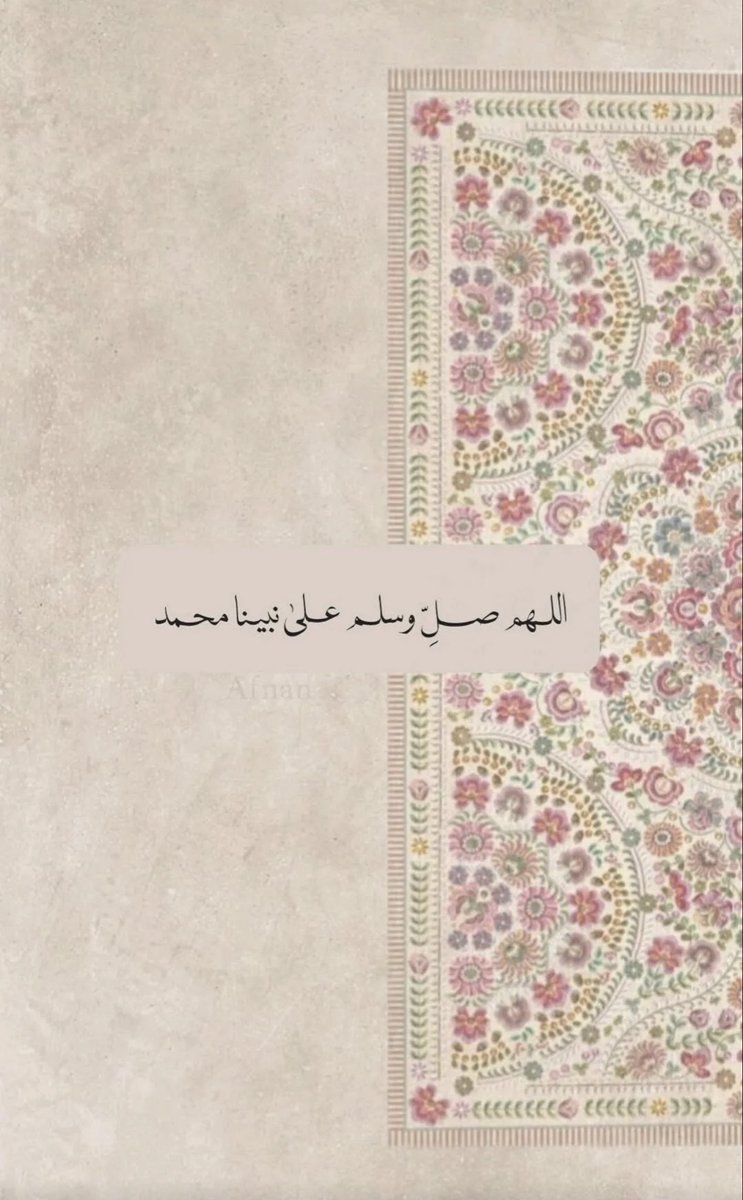 اللهم صلِّ وسلم علىٰ نبينا محمد
Afnan